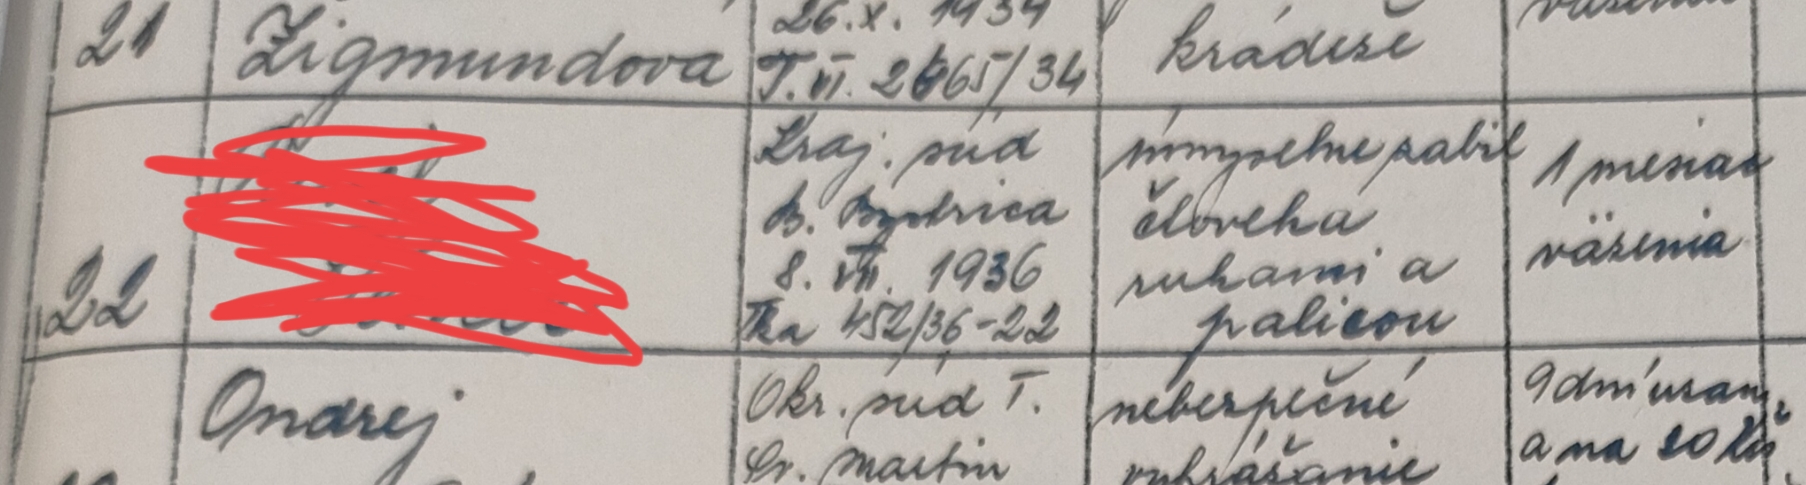 21
Žigmundova
26.X. 1934
T.VI. 2665/34
krádeže
22
Kraj. súd
B. Bystrica
8. VII. 1936
Tka 452/36-22
úmyselne zabil
človeka
rukami a
palicou
1 mesiac
väzenia
Ondrej
Okr. súd T.
Sv. Martin
nebezpečné
vyhrážanie
9 dní
a na 20 Kč